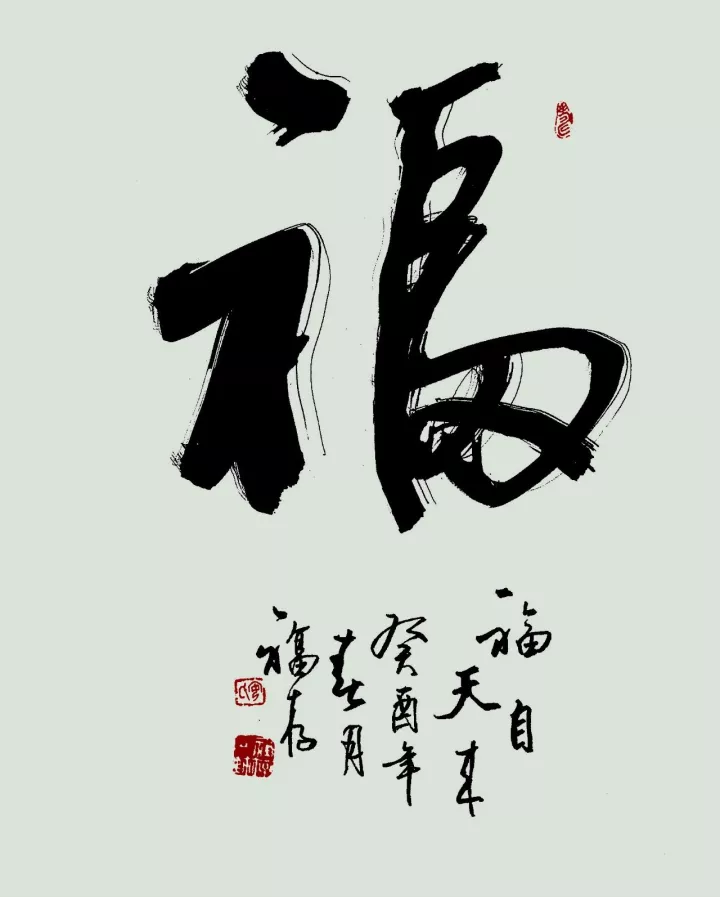 福
福自
天来
癸酉年
春月
福存